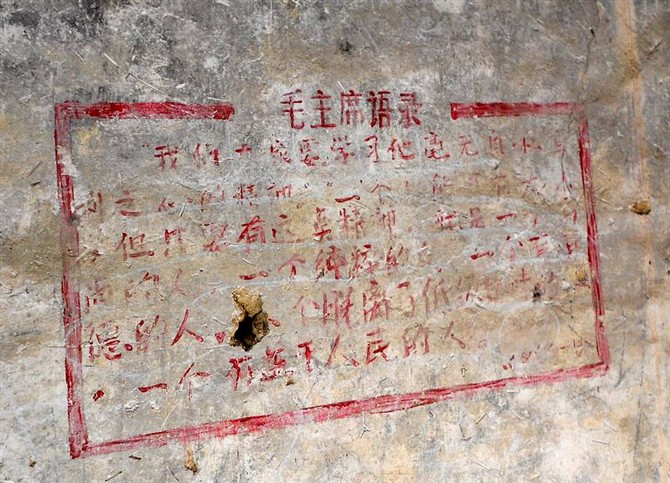 毛主席语录
"我们大家要学习他毫无自私
利之心的精神。"一个人能力
但只要有这点精神，就是一个
尚的人，一个纯粹的 一个有道
德的人， 个脱离了低级趣
，一个有益于人民的人。